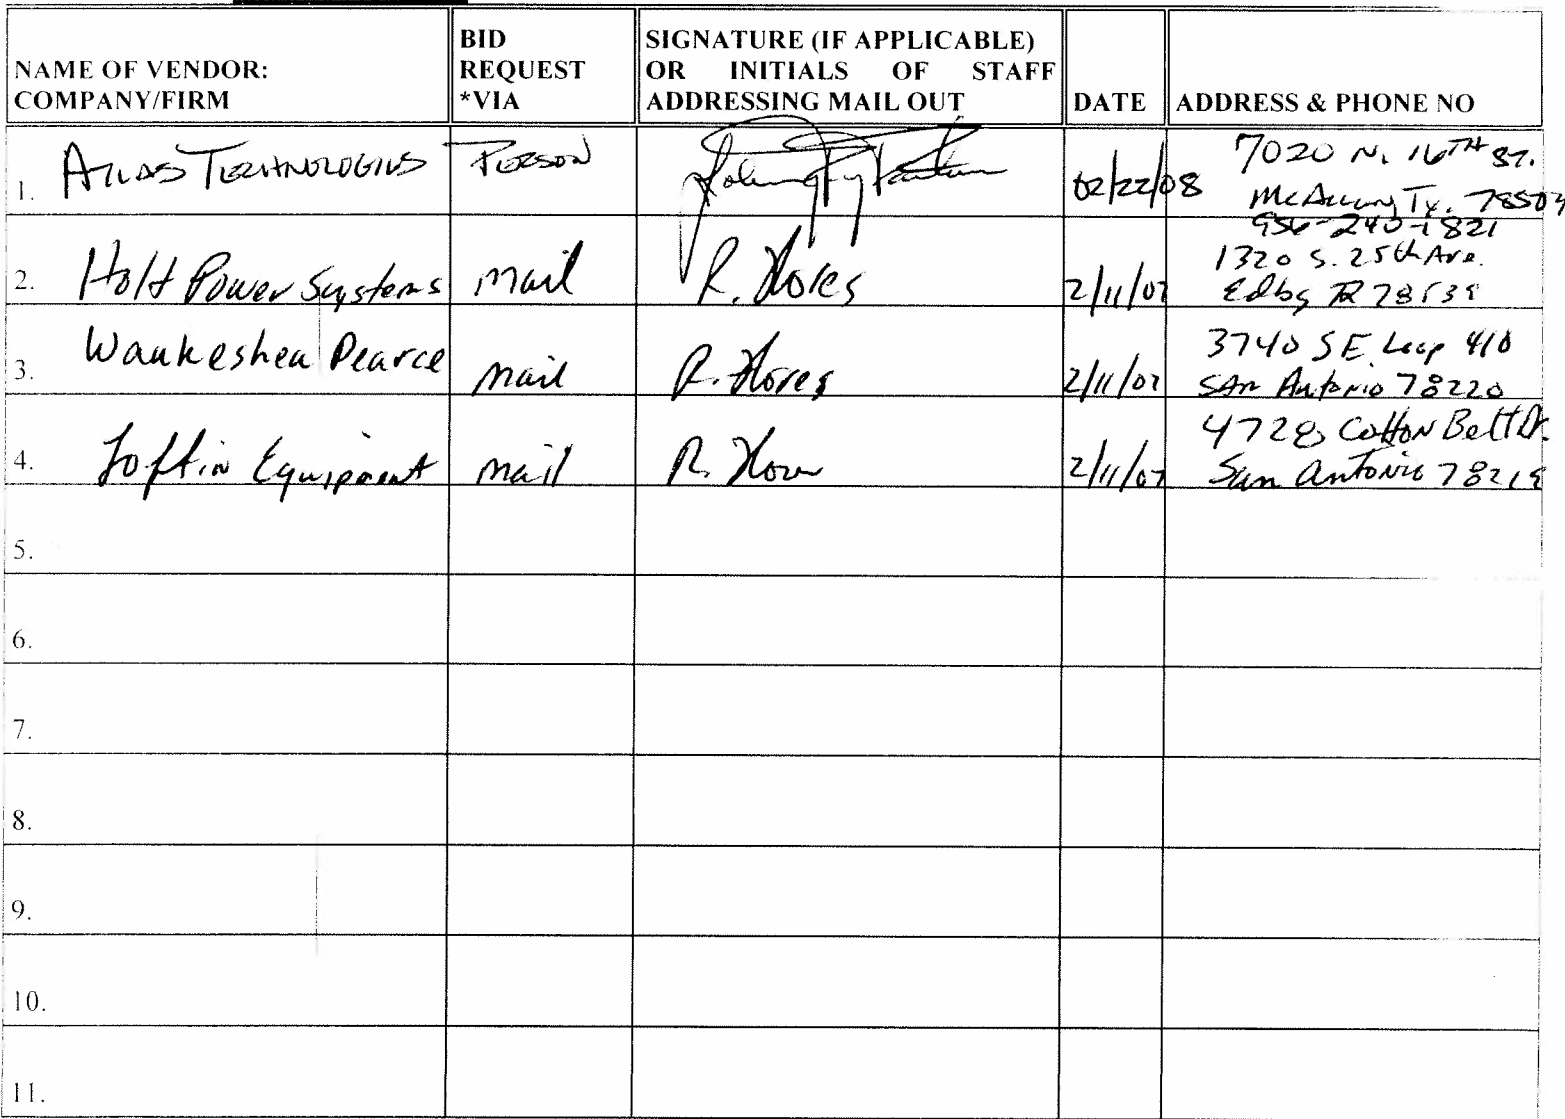 NAME OF VENDOR:
COMPANY/FIRM
BID
REQUEST
*VIA
SIGNATURE (IF APPLICABLE)
OR INITIALS OF STAFF
ADDRESSING MAIL OUT
DATE
ADDRESS & PHONE NO
1. ATLAS TECHNOLOGIES PERSON 02/22/08 7020 N. 16TH ST.
McAllen, Tx. 78504
956-240-1821
2. Holt Power Systems mail R. Flores 2/11/07 1320 S. 25th Ave.
Edbg TX 78539
3. Waukeshea Pearce mail R. Flores 2/11/07 3740 SE Loop 410
SAn Antonio 78220
4. Loftin Equipment mail R. 2/11/07 4728 Cotton Belt Dr.
San Antonio 78219
5.
6.
7.
8.
9.
10.
11.